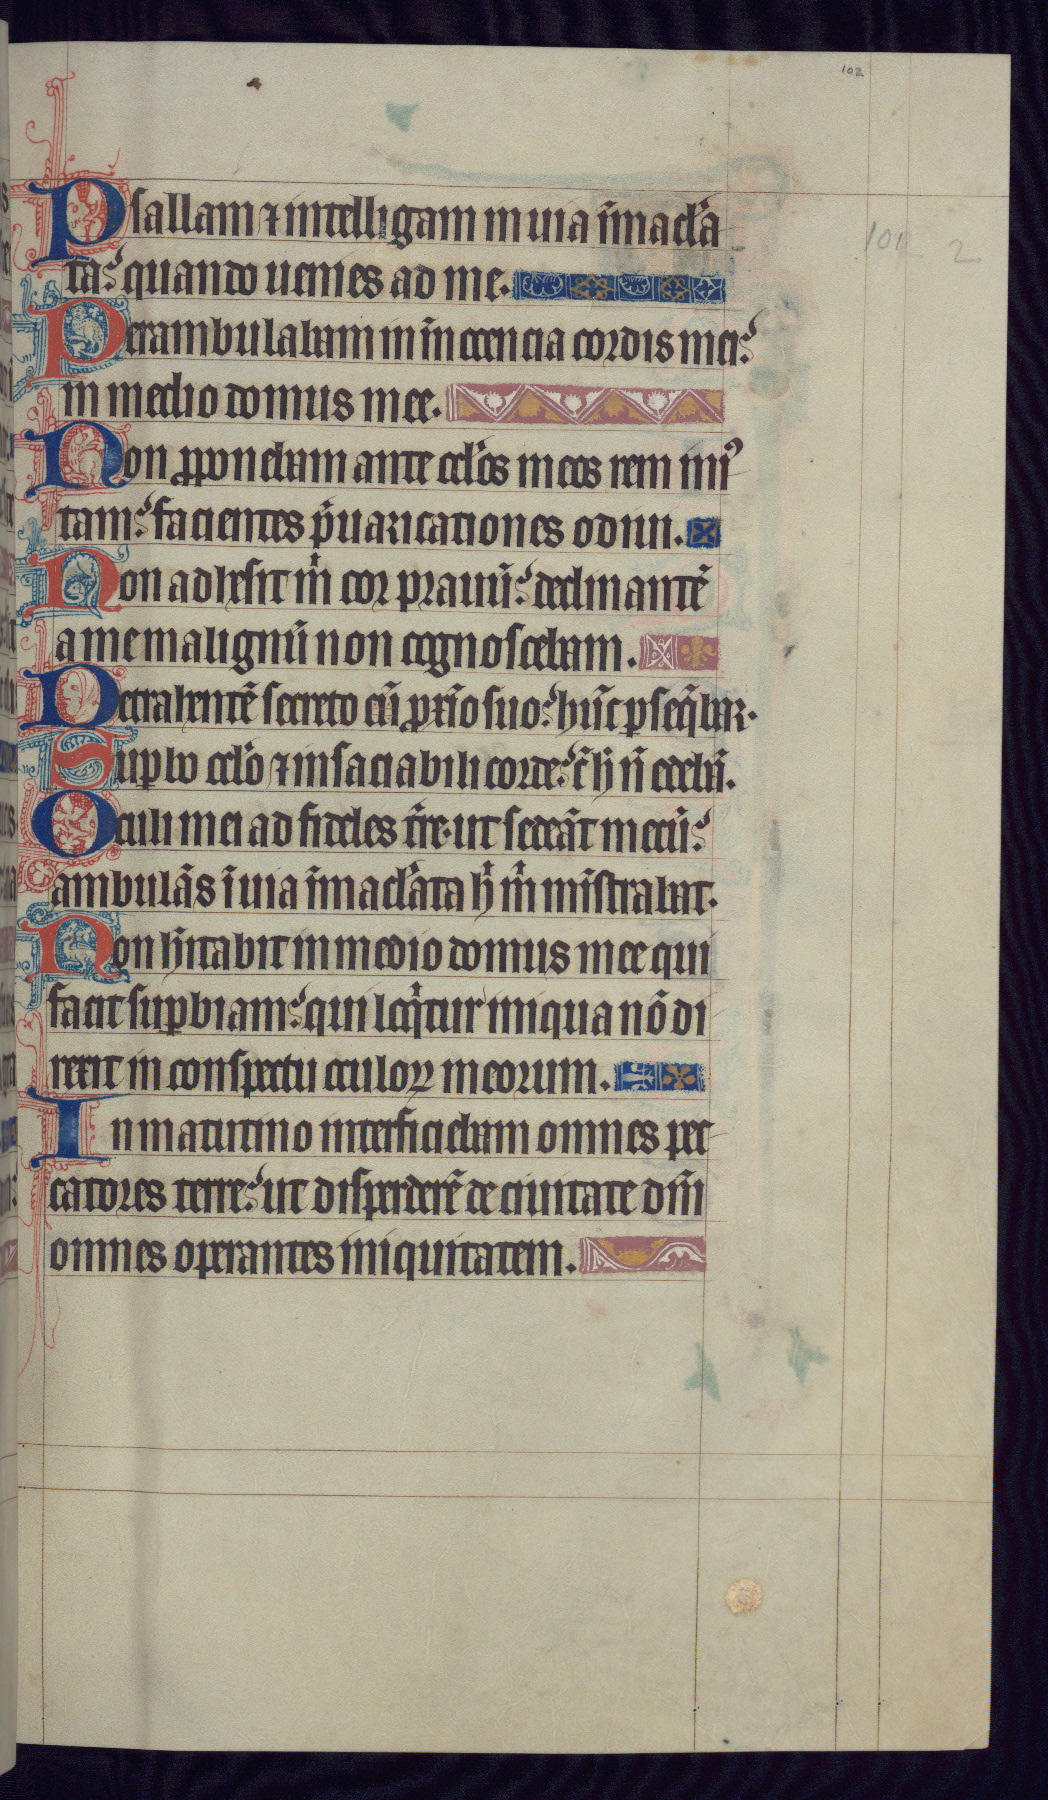 102
101 2
Psallam ⁊ intelligam in uia īmacl̕a
ta؛ quando uenies ad me.
Perambulabam in īnocencia cordis mei؛
in medio domus mee.
Non ꝓponebam ante ocl̕os meos rem iniꝰ
tam؛ facientes p̄uaricationes odiui.
Non adhesit m̄ cor prauū؛ declinantē
a me malignū non cognoscebam.
Detrahentē secreto cū ꝓxīo suo؛ hūc ꝑseq̄bar.
Suꝑbo ocl̕o ⁊ insaciabili corde؛ c̄ h̄ n̄ edebā.
Oculi mei ad fideles t̄re. ut sedeāt mecū؛
ambulās ī uia īmacl̕ata h̄ m̄ mīstrabat.
Non h̄itabit in medio domus mee qui
facit suꝑbiam؛ qui loq̄tur iniqua nō di
rexit in conspectu oculoꝝ meorum.
In matutino interficiebam omnes pec
catores terre؛ ut disperderē de ciuitate dn̄i
omnes operantes iniquitatem.